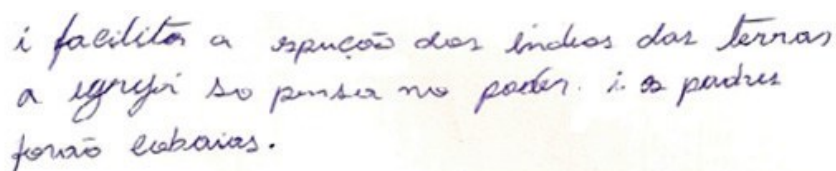 i facilita a espução dos índios das terras
a igreja so pensa no poder. i os padres
forão cobaias.